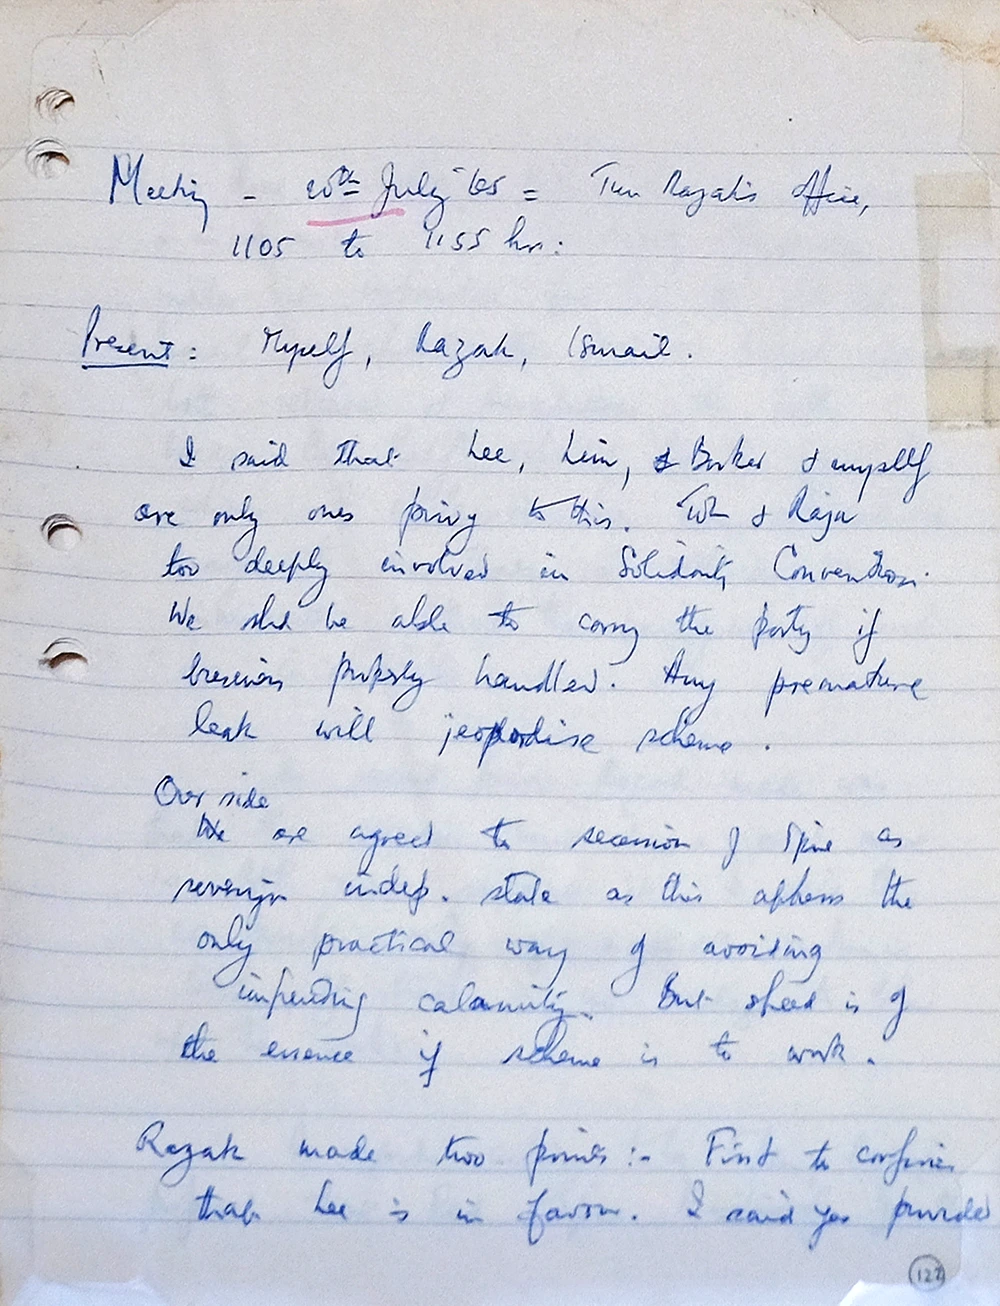 Meeting - 20th July '65 = Tun Razak's office,
1105 to 1155 hrs:
Present: Myself, Razak, Ismail.
I said that Lee, Lim, & Barker & myself
are only ones privy to this. Toh & Raja
too deeply involved in Solidarity Convention.
We shd be able to carry the party if
business properly handled. Any premature
leak will jeopardise scheme.
Our side
are agreed to secession of S'pore as
sovereign indep. state as this appears the
only practical way of avoiding
impending calamity. But speed is of
the essence if scheme is to work.
Razak made two points:- First to confirm
that Lee is in favour. I said yes provided
122